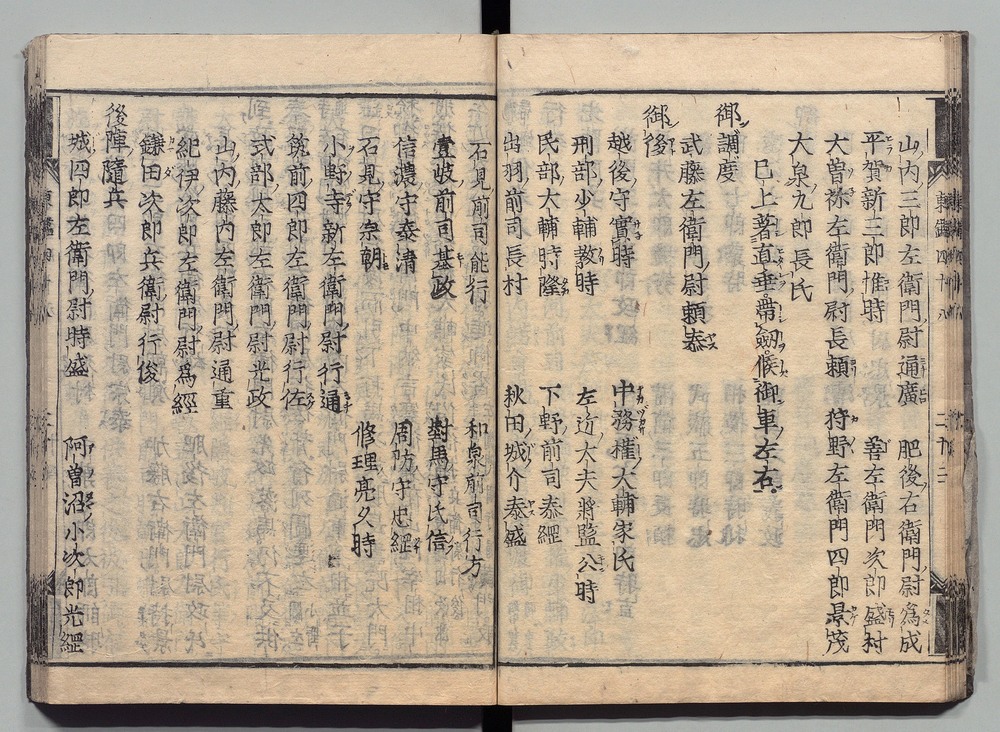 山内三郎左衛門尉通廣　肥後右衛門尉為成
平賀新三郎惟時　善左衛門次郎盛村
大曽祢左衛門尉長頼　狩野左衛門四郎景茂
大泉九郎長氏
已上著直垂帶劔候御車左右
御調度
武藤左衛門尉頼泰
御後
越後守實時　中務権大輔家氏
刑部少輔教時　左近大夫將監公時
民部大輔時隆　下野前司泰經
出羽前司長村　秋田城介泰盛
石見前司能行　和泉前司行方
壹岐前司基政　對馬守氏信
信濃守泰清　周防守忠經
石見守宗朝　修理亮久時
小野寺新左衛門尉行通
筑前四郎左衛門尉行佐
式部太郎左衛門尉光政
山内藤内左衛門尉通重
紀伊次郎左衛門尉為經
鎌田次郎兵衛尉行俊
後陣隨兵
城四郎左衛門尉時盛　阿曽沼小次郎光經
東鑑四十八